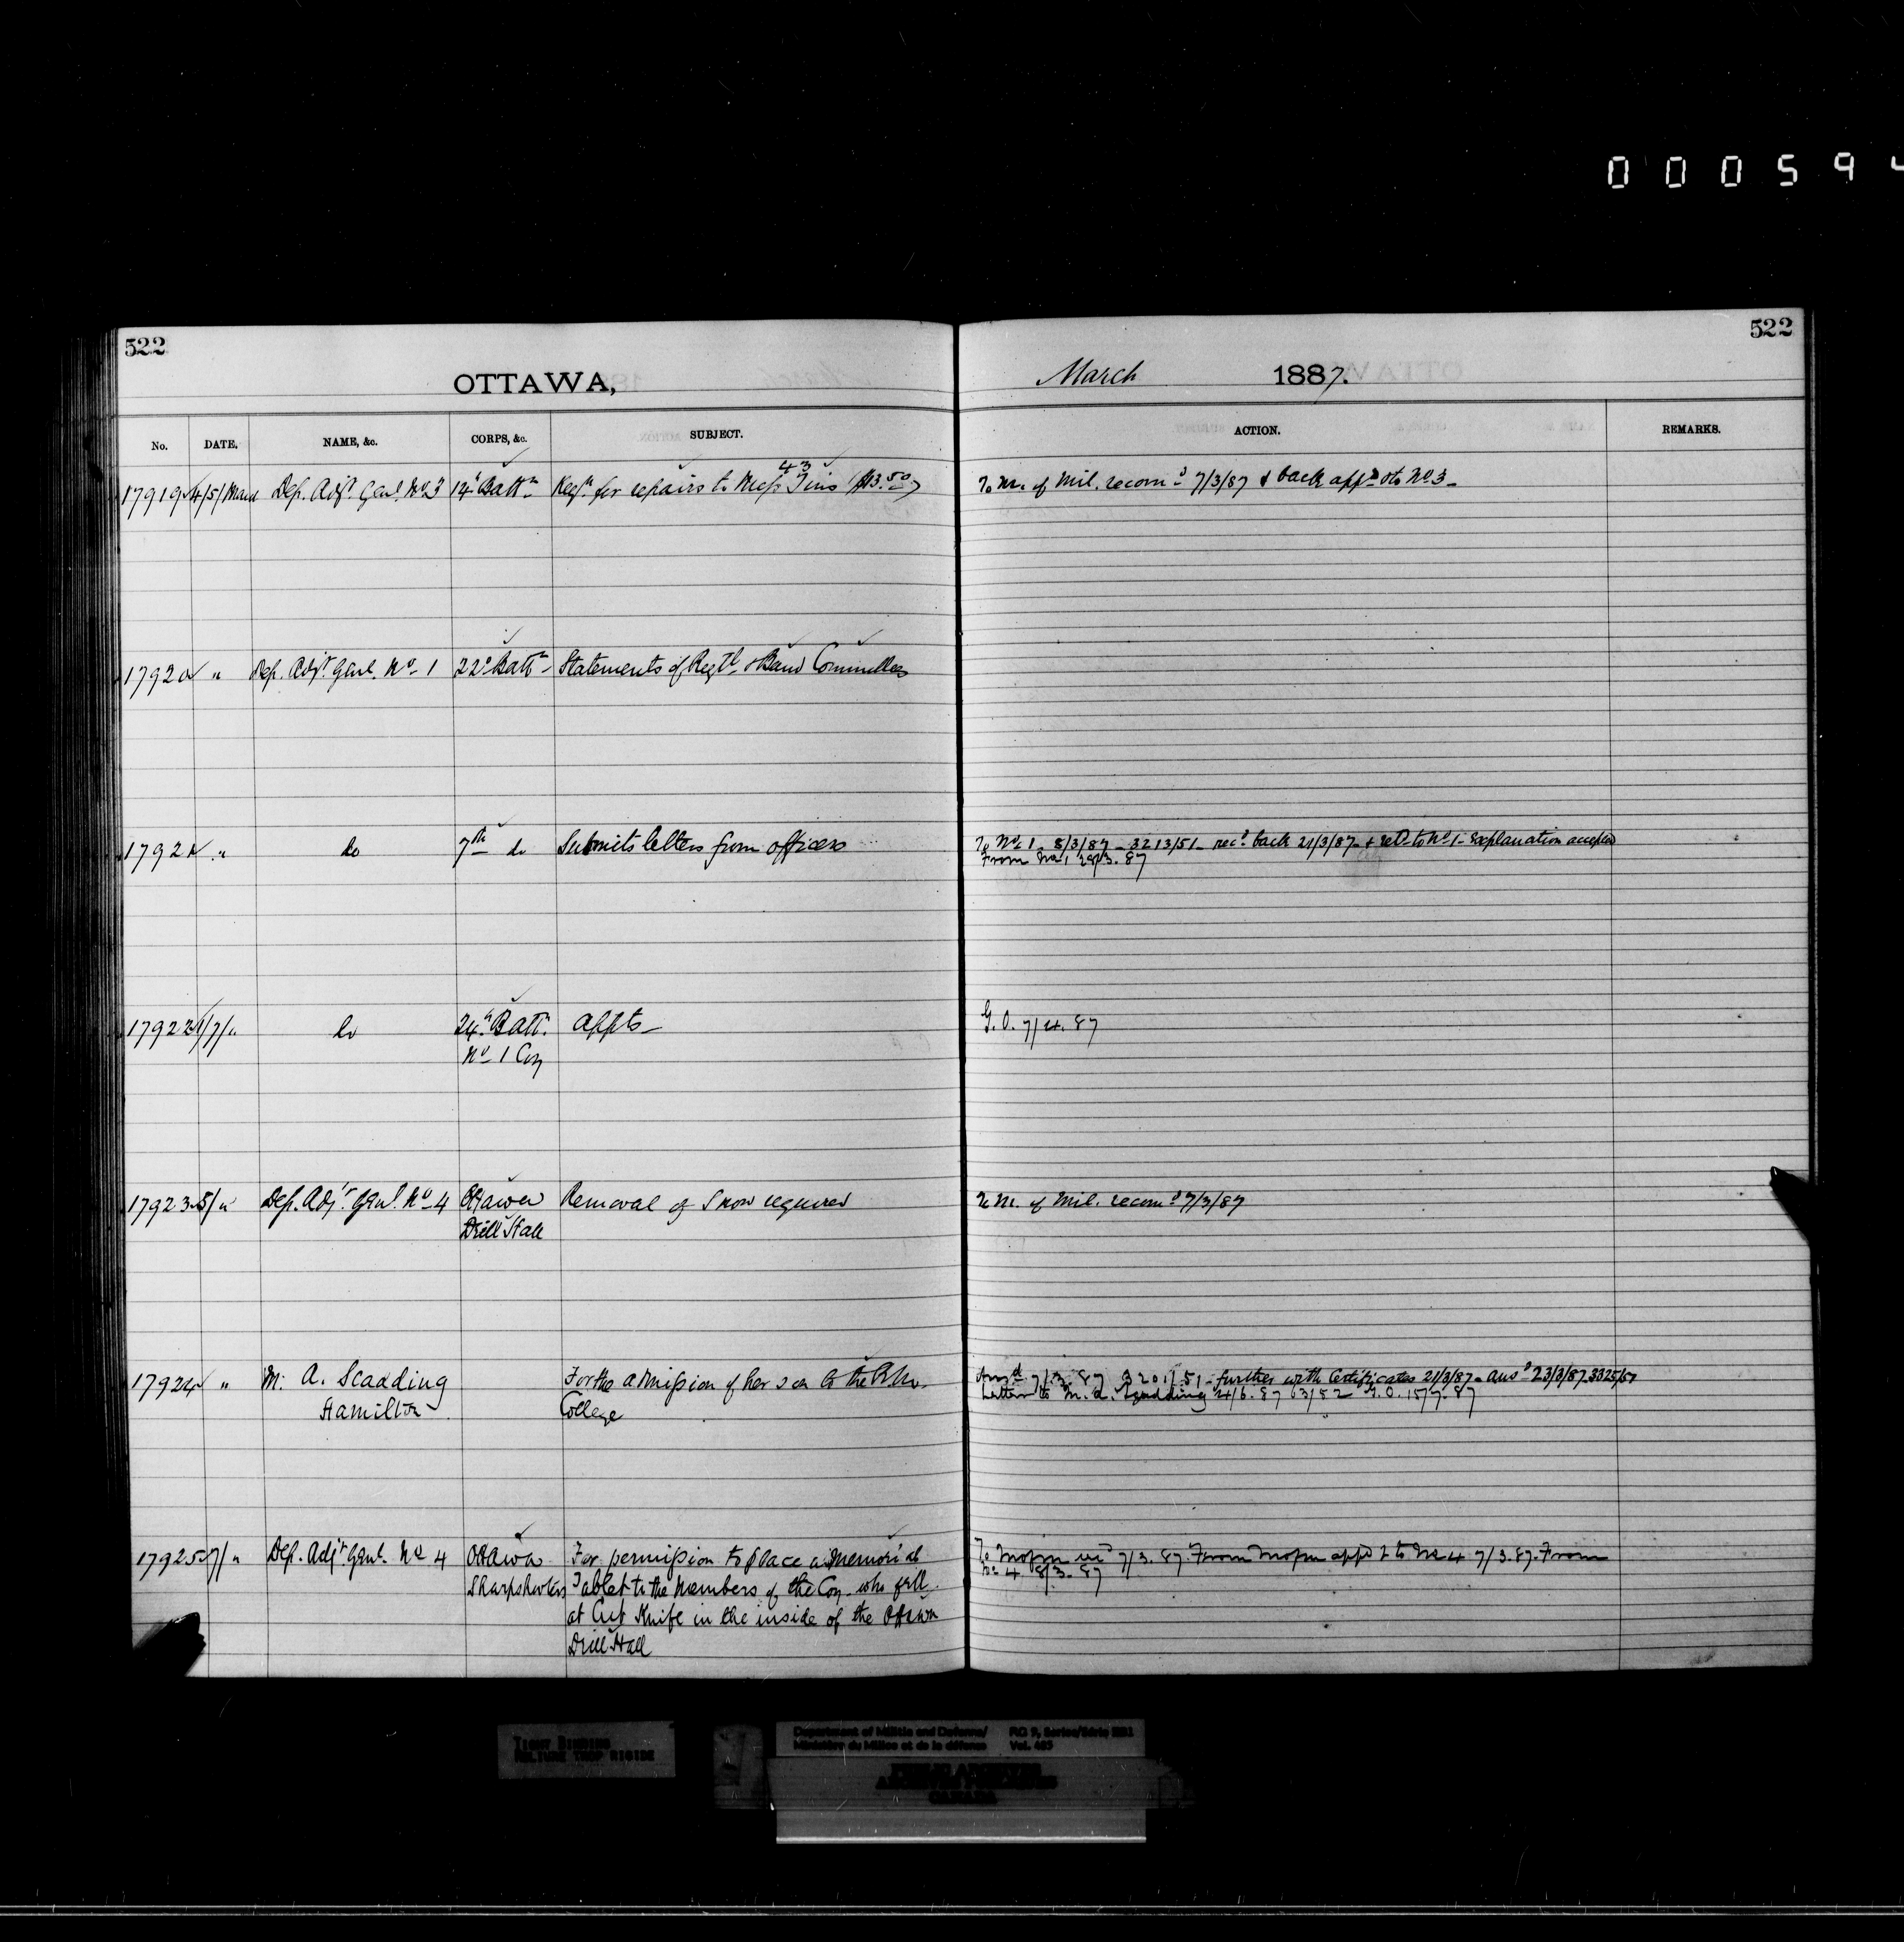 000594
522
522
OTTAWA,
March 1887.
No. DATE. NAME, &c. CORPS, &c. SUBJECT. ACTION. REMARKS.
17919 4/5/March Dep. Adjt. Genl. No. 3 14th Battn Reqn. for repairs to 43 Mess Tins ($13.50) To M. of Mil. recomd 7/3/87 & back appd & to No 3 -
17920 " Dep. Adjt. Genl. No 1 22d Battn Statements of Regtl & Band Committees
17921 " do 7th do Submits letters from officers To No. 1 - 8/3/87 - 3213/51 - recd. back 21/3/87 - & retd to No 1 - Explanation accepted
From No 1 28/3.87
17922 1/7/" do 24th Battn. appts - G. O. 7/4.87
No 1 Coy
17923 5/" Dep. Adjt. Genl. No 4 Ottawa Removal of Snow required To M. of Mil. recomd 7/3/87
Drill Hall
17924 " M. A. Scadding For the admission of her son to the R. M. Ansd 7/3.87 3201/51 - further with Certificates 21/3/87 - ansd 23/3/87 3325/51
Hamilton College Letter to M. A. Scadding 24/6.87 63/52 G.O. 15/7.87
17925 7/" Dep. Adjt. Genl. No 4 Ottawa For permission to place a memorial To mofm 7/3.87. From mofm appd & to No 4 7/3.87. From
Sharpshooters Tablet to the members of the Coy. who fell No 4 8/3.87
at Cut Knife in the inside of the Ottawa
Drill Hall
TIGHT BINDING
RELIURE TROP RIGIDE
Department of Militia and Defence/ RG 9, Series/Série IIB1
Ministère du Milice et de la défense Vol. 465
PUBLIC ARCHIVES
ARCHIVES PUBLIQUES
CANADA